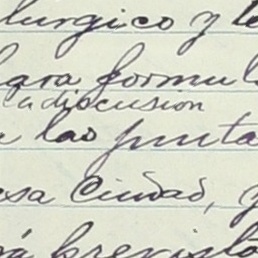 lurgico y te
para formul
a discusion
a las junta
esa Ciudad, y
rá previsto